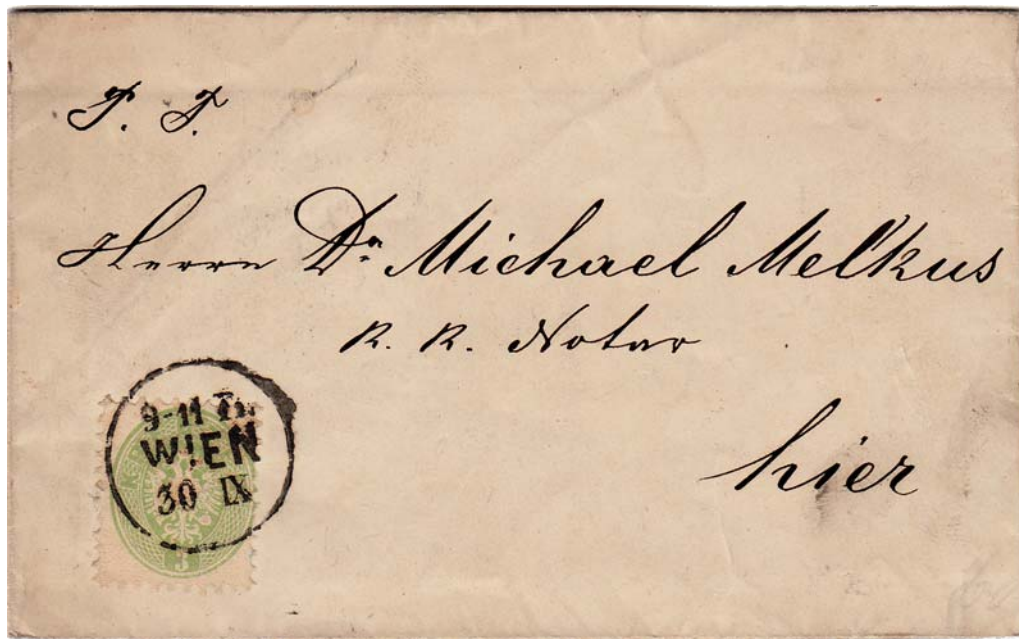 P. T.
Herrn Dr. Michael Melkus
k. k. Notar
hier
9-11
WIEN
30 IX